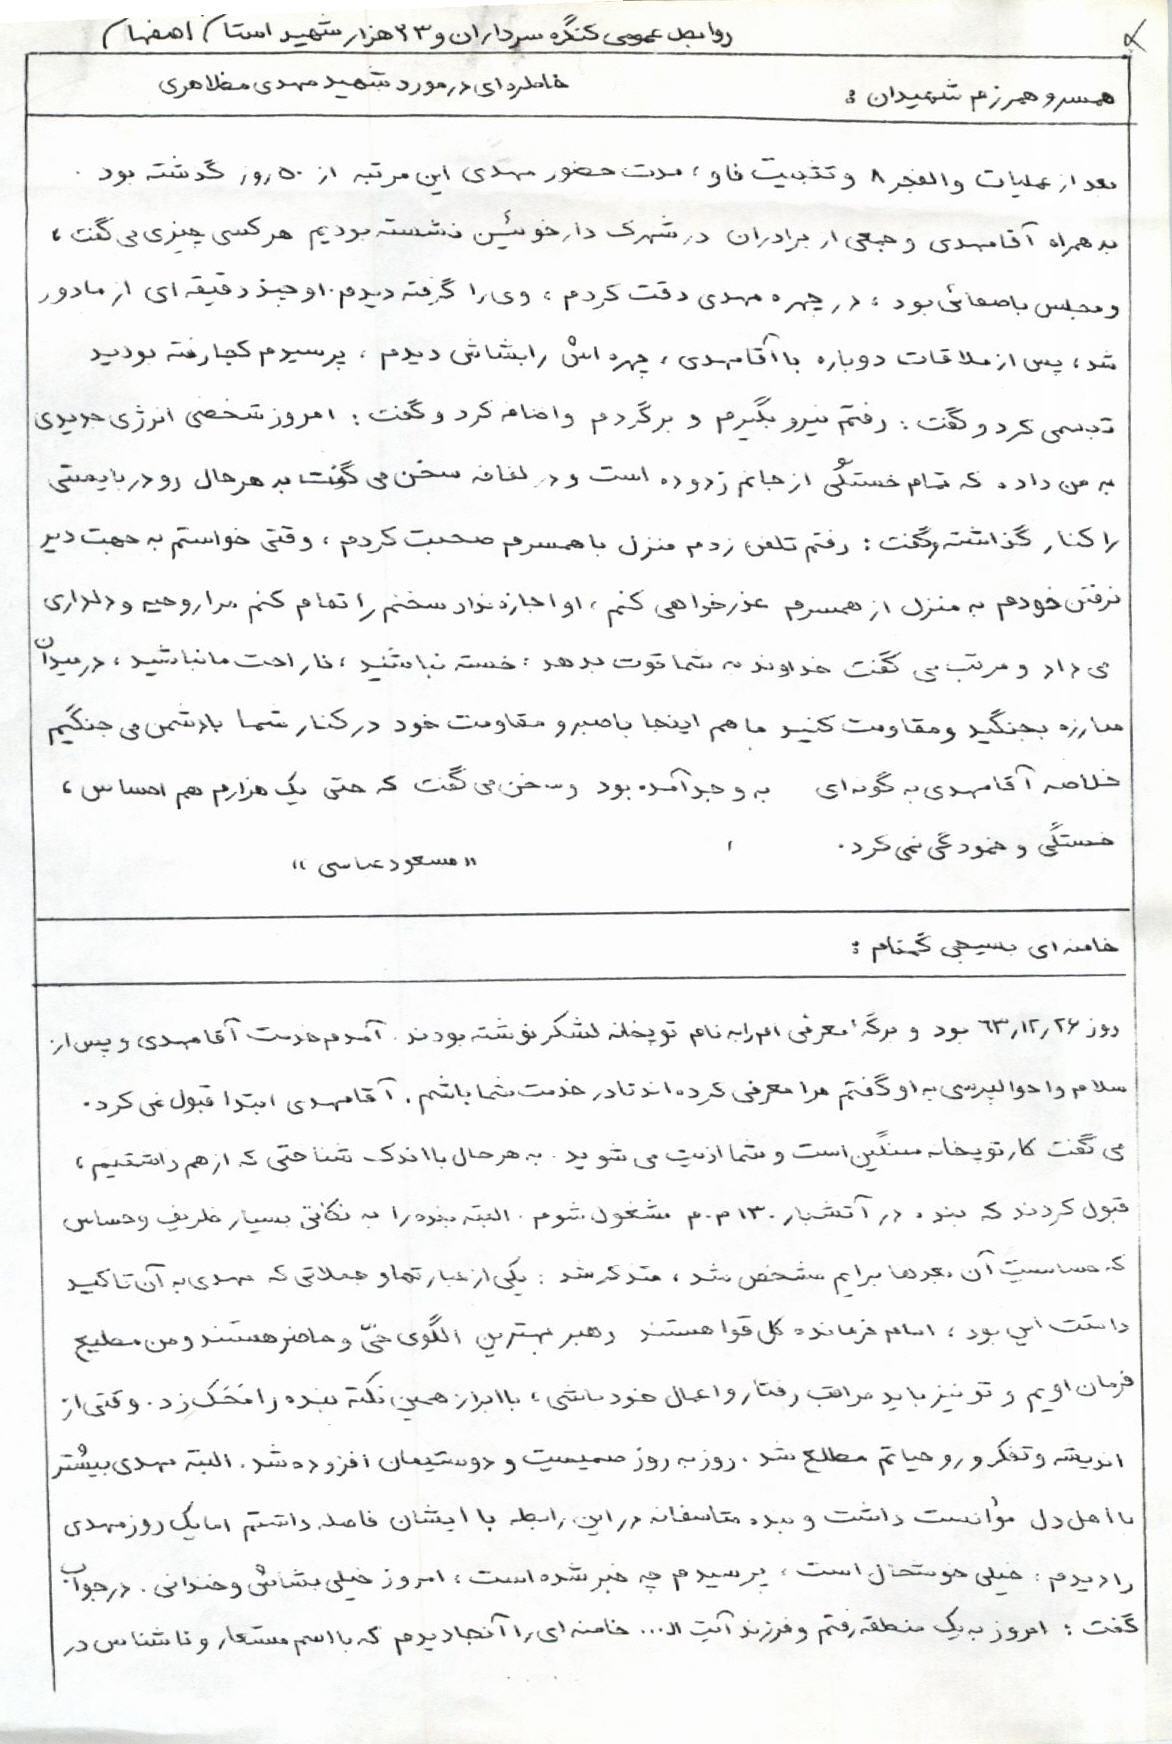 روابط عمومی کنگره سرداران و ۲۳ هزار شهید استان اصفهان
همسر و همرزم شهیدان :
خاطره ای در مورد شهید مهدی مظاهری
بعد از عملیات والفجر ۸ و تثبیت فاو ، مدت حضور مهدی این مرتبه از ۵۰ روز گذشته بود .
به همراه آقامهدی و جمعی از برادران در شهرک دارخوئین نشسته بودیم هر کسی چیزی می گفت ،
و مجلس باصفائی بود ، در چهره مهدی دقت کردم ، وی را گرفته دیدم . او چند دقیقه ای از ما دور
شد ، پس از ملاقات دوباره با آقامهدی ، چهره اش را بشاش دیدم ، پرسیدم کجا رفته بودید
تبسمی کرد و گفت : رفتم نیرو بگیرم و برگردم و اضافه کرد و گفت : امروز شخصی انرژی جدیدی
به من داده که تمام خستگی از جانم زدوده است و در لفافه سخن می گفت به هر حال رودربایستی
را کنار گذاشته و گفت : رفتم تلفن زدم منزل با همسرم صحبت کردم ، وقتی خواستم به جهت دیر
نرفتن خودم به منزل از همسرم عذرخواهی کنم ، او اجازه نداد سخنم را تمام کنم مرا روحیه و دلداری
می داد و مرتب می گفت خداوند به شما قوت بدهد ؛ خسته نباشید ، ناراحت ما نباشید ، در میدان
مبارزه بجنگید و مقاومت کنید ما هم اینجا با صبر و مقاومت خود در کنار شما با دشمن می جنگیم
خلاصه آقامهدی به گونه ای به وجد آمده بود و سخن می گفت که حتی یک هزارم هم احساس ،
خستگی و خمودگی نمی کرد .
« مسعود عباسی »
خامنه ای بسیجی گمنام :
روز ۶۳٫۱۲٫۲۶ بود و برگۀ معرفی ام را به نام توپخانه لشکر نوشته بودند . آمدم خدمت آقامهدی و پس از
سلام و احوالپرسی به او گفتم مرا معرفی کرده اند تا در خدمت شما باشم . آقامهدی ابتدا قبول نمی کرد .
می گفت کار توپخانه سنگین است و شما اذیت می شوید . به هر حال با اندک شناختی که از هم داشتیم ،
قبول کردند که بنده در آتشبار ۱۳۰ م.م مشغول شوم . البته بنده را به نکاتی بسیار ظریف و حساس
که حساسیت آن بعدها برایم مشخص شد ، متذکر شد : یکی از عبارتها و جملاتی که مهدی به آن تاکید
داشت این بود ، امام فرمانده کل قوا هستند رهبر بهترین الگوی حیّ و حاضر هستند و من مطیع
فرمان اویم و تو نیز باید مراقب رفتار و اعمال خود باشی ، با ابراز همین نکته بنده را مَحَک زد . وقتی از
اندیشه و تفکر و روحیاتم مطلع شد . روز به روز صمیمیت و دوستیمان افزوده شد . البته مهدی بیشتر
با اهل دل مؤانست داشت و بنده متاسفانه در این رابطه با ایشان فاصله داشتم اما یک روز مهدی
را دیدم ؛ خیلی خوشحال است ، پرسیدم چه خبر شده است ، امروز خیلی بشاش و خندانی . در جواب
گفت : امروز به یک منطقه رفتم و فرزند آیت ا... خامنه ای را آنجا دیدم که با اسم مستعار و ناشناس در